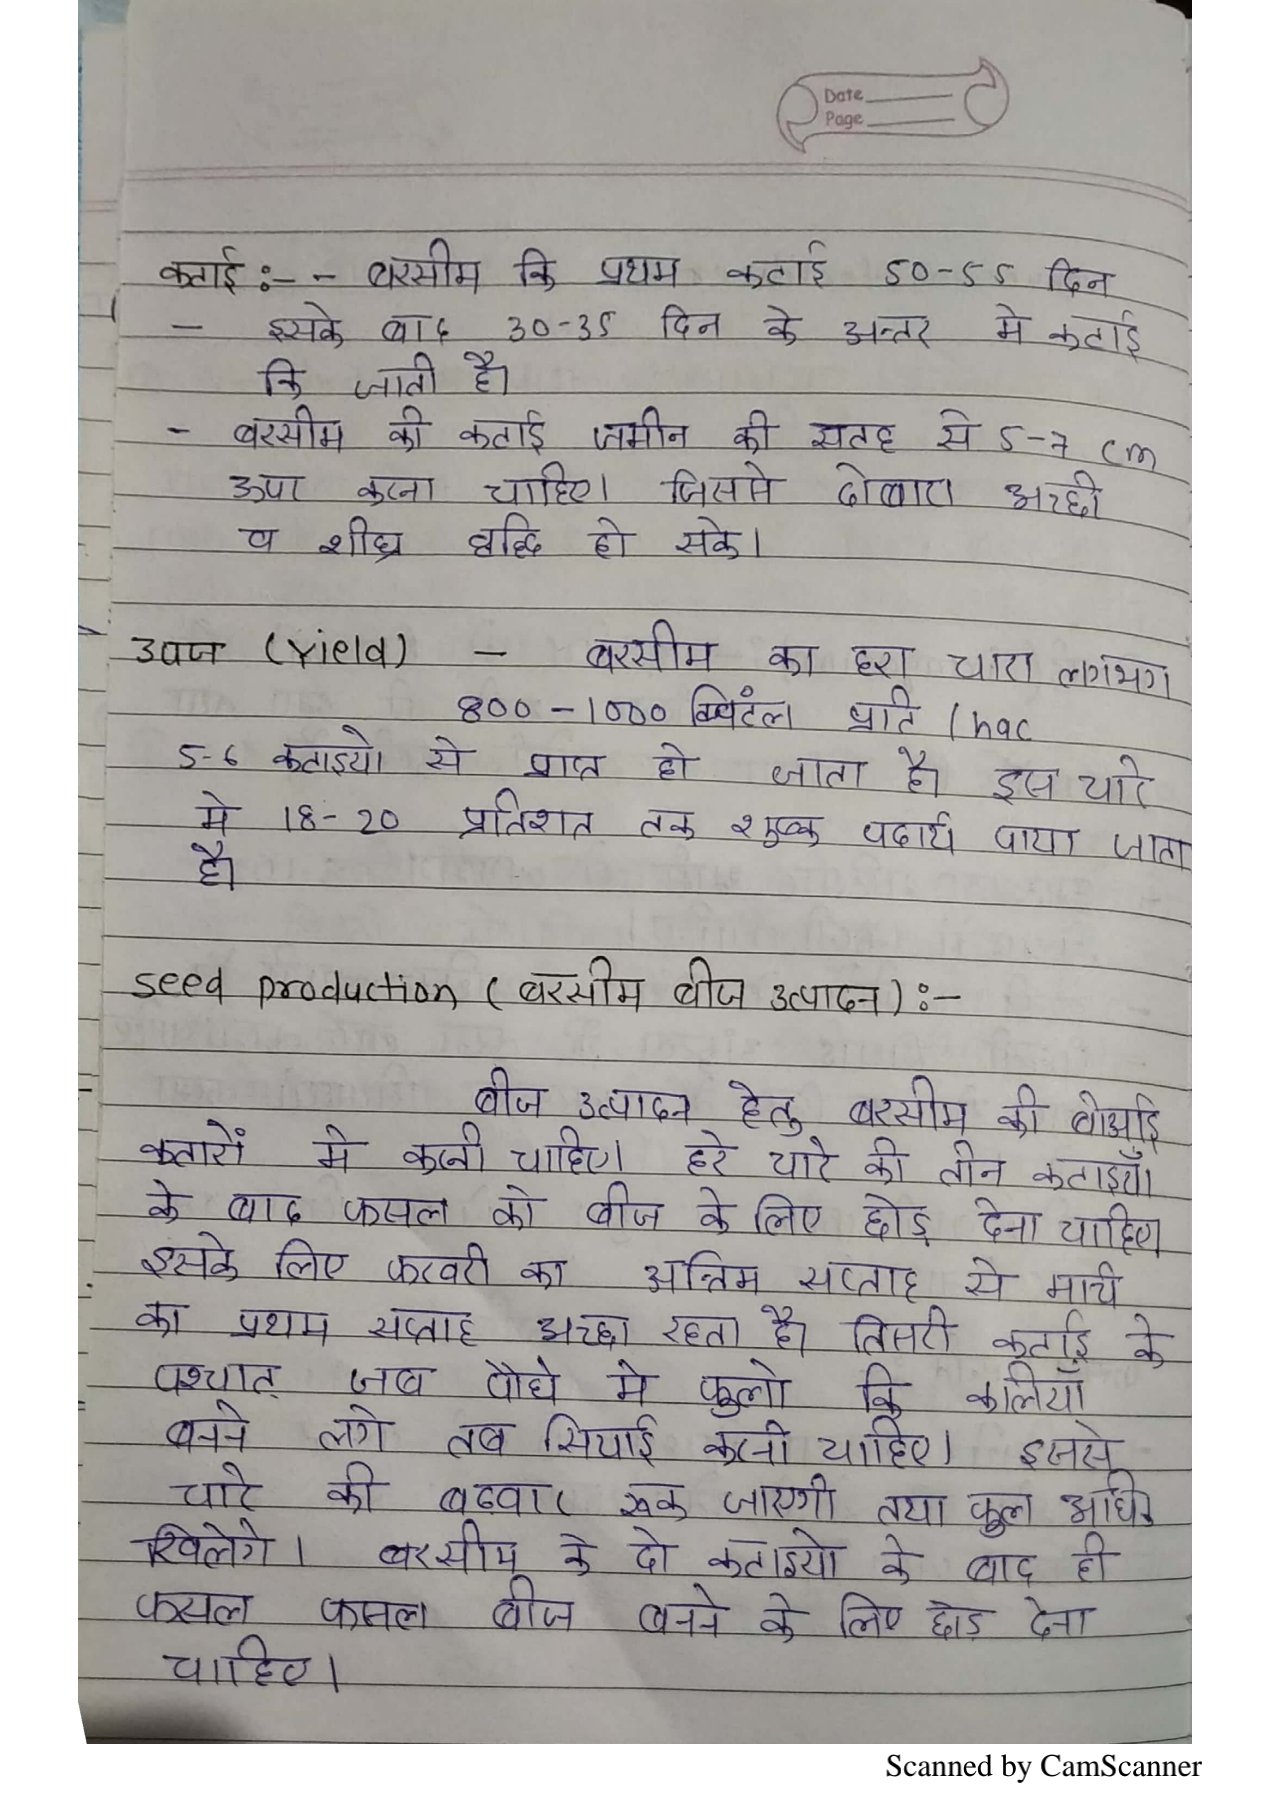 Date
Page
कटाई :- - बरसीम कि प्रथम कटाई 50-55 दिन
- इसके बाद 30-35 दिन के अन्तर मे कटाई
कि जाती है।
- बरसीम की कटाई जमीन की सतह से 5-7 cm
ऊपर करना चाहिए। जिससे दोबारा अच्छी
व शीघ्र वृद्धि हो सके।
उपज (Yield) - बरसीम का हरा चारा लगभग
800-1000 क्विंटल प्रति /hac
5-6 कटाइयो से प्राप्त हो जाता है। इस चारे
मे 18-20 प्रतिशत तक शुष्क पदार्थ पाया जाता
है।
seed production (बरसीम बीज उत्पादन) :-
बीज उत्पादन हेतु बरसीम की बोआई
कतारों मे करनी चाहिए। हरे चारे की तीन कटाइयाँ
के बाद फसल को बीज के लिए छोड़ देना चाहिए।
इसके लिए फरवरी का अन्तिम सप्ताह से मार्च
का प्रथम सप्ताह अच्छा रहता है। तिसरी कटाई के
पश्चात् जब पौधे मे फुलो कि कलियाँ
बनने लगे तब सिचाई करनी चाहिए। इससे
चारे की बढवार रूक जाएगी तथा फुल अधिक
खिलेगे। बरसीम के दो कटाइयो के बाद ही
फसल फसल बीज बनने के लिए छोड देना
चाहिए।
Scanned by CamScanner